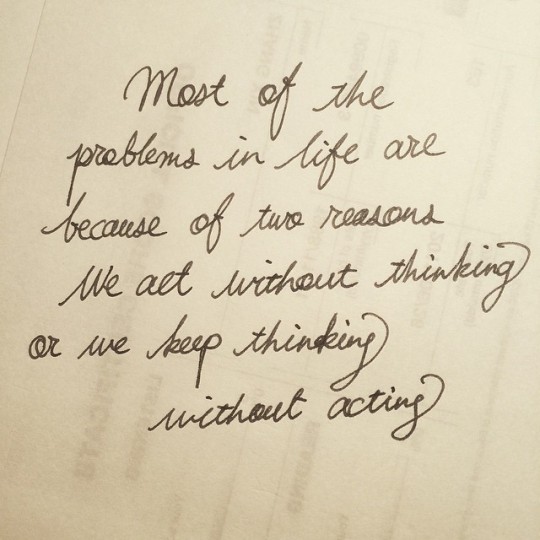 Most of the
problems in life are
because of two reasons
We act without thinking
or we keep thinking
without acting